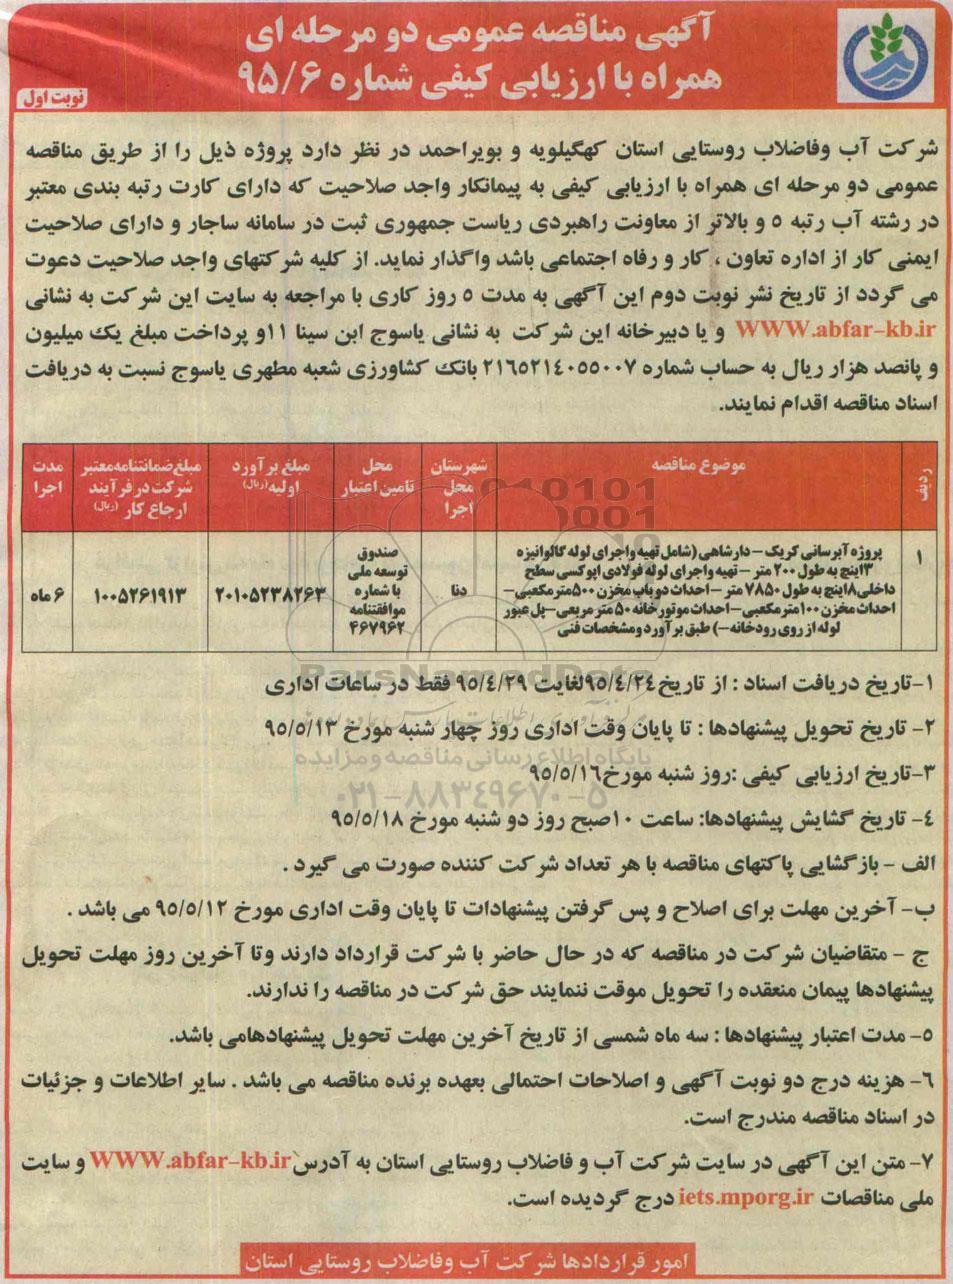 آگهی مناقصه عمومی دو مرحله ای
همراه با ارزیابی کیفی شماره ۹۵/۶
نوبت اول
شرکت آب وفاضلاب روستایی استان کهگیلویه و بویراحمد در نظر دارد پروژه ذیل را از طریق مناقصه
عمومی دو مرحله ای همراه با ارزیابی کیفی به پیمانکار واجد صلاحیت که دارای کارت رتبه بندی معتبر
در رشته آب رتبه ۵ و بالاتر از معاونت راهبردی ریاست جمهوری ثبت در سامانه ساجار و دارای صلاحیت
ایمنی کار از اداره تعاون ، کار و رفاه اجتماعی باشد واگذار نماید. از کلیه شرکتهای واجد صلاحیت دعوت
می گردد از تاریخ نشر نوبت دوم این آگهی به مدت ۵ روز کاری با مراجعه به سایت این شرکت به نشانی
WWW.abfar-kb.ir و یا دبیرخانه این شرکت به نشانی یاسوج ابن سینا ۱۱و پرداخت مبلغ یک میلیون
و پانصد هزار ریال به حساب شماره ۲۱۶۵۲۱۴۰۵۵۰۰۷ بانک کشاورزی شعبه مطهری یاسوج نسبت به دریافت
اسناد مناقصه اقدام نمایند.
ردیف
موضوع مناقصه
شهرستان
محل
اجرا
محل
تامین اعتبار
مبلغ برآورد
اولیه (ریال)
مبلغ ضمانتنامه معتبر
شرکت در فرآیند
ارجاع کار (ریال)
مدت
اجرا
۱
پروژه آبرسانی کریک – دارشاهی (شامل تهیه واجرای لوله گالوانیزه
۳اینچ به طول ۲۰۰ متر – تهیه واجرای لوله فولادی اپوکسی سطح
داخلی۸اینچ به طول ۷۸۵۰ متر – احداث دو باب مخزن ۵۰۰مترمکعبی–
احداث مخزن ۱۰۰مترمکعبی–احداث موتورخانه ۵۰ متر مربعی–پل عبور
لوله از روی رودخانه–) طبق برآورد ومشخصات فنی
دنا
صندوق
توسعه ملی
با شماره
موافقتنامه
۴۶۷۹۶۲
۲۰۱۰۵۲۳۸۲۶۳
۱۰۰۵۲۶۱۹۱۳
۶ ماه
ParsNamadData
۱-تاریخ دریافت اسناد : از تاریخ۹۵/۴/۲۴لغایت ۹۵/۴/۲۹ فقط در ساعات اداری
۲- تاریخ تحویل پیشنهادها : تا پایان وقت اداری روز چهار شنبه مورخ ۹۵/۵/۱۳
پایگاه اطلاع رسانی مناقصه و مزایده
۳-تاریخ ارزیابی کیفی :روز شنبه مورخ۹۵/۵/۱۶
۰۲۱-۸۸۳۴۹۶۷۰-۵
۴- تاریخ گشایش پیشنهادها: ساعت ۱۰صبح روز دو شنبه مورخ ۹۵/۵/۱۸
الف - بازگشایی پاکتهای مناقصه با هر تعداد شرکت کننده صورت می گیرد .
ب- آخرین مهلت برای اصلاح و پس گرفتن پیشنهادات تا پایان وقت اداری مورخ ۹۵/۵/۱۲ می باشد .
ج - متقاضیان شرکت در مناقصه که در حال حاضر با شرکت قرارداد دارند وتا آخرین روز مهلت تحویل
پیشنهادها پیمان منعقده را تحویل موقت ننمایند حق شرکت در مناقصه را ندارند.
۵- مدت اعتبار پیشنهادها : سه ماه شمسی از تاریخ آخرین مهلت تحویل پیشنهادهامی باشد.
۶- هزینه درج دو نوبت آگهی و اصلاحات احتمالی بعهده برنده مناقصه می باشد . سایر اطلاعات و جزئیات
در اسناد مناقصه مندرج است.
۷- متن این آگهی در سایت شرکت آب و فاضلاب روستایی استان به آدرس WWW.abfar-kb.ir و سایت
ملی مناقصات iets.mporg.ir درج گردیده است.
امور قراردادها شرکت آب وفاضلاب روستایی استان